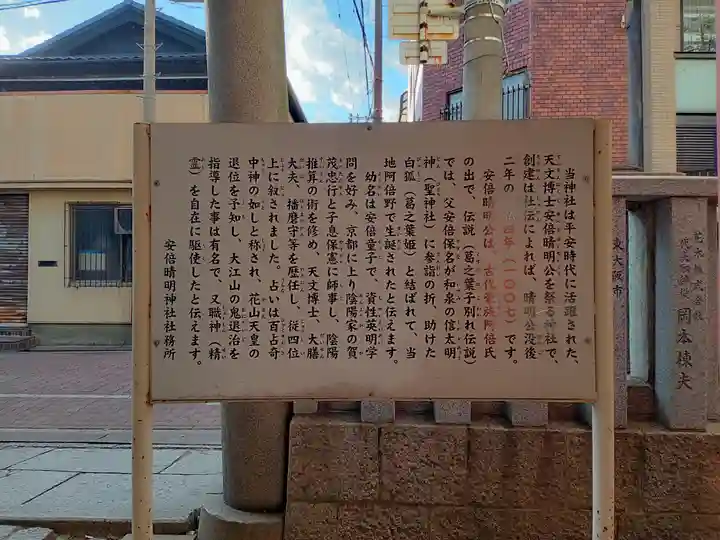 当神社は平安時代に活躍された、
天文博士安倍晴明公を祭る神社で、
創建は社伝によれば、晴明公没後
二年の 四年(一〇〇七)です。
安倍晴明公は、古代豪族阿倍氏
の出で、伝説(葛之葉子別れ伝説)
では、父安倍保名が和泉の信太明
神(聖神社)に参詣の折、助けた
白狐(葛之葉姫)と結ばれて、当
地阿倍野で生誕されたと伝えます。
幼名は安倍童子で、資性英明学
問を好み、京都に上り陰陽家の賀
茂忠行と子息保憲に師事し、陰陽
推算の術を修め、天文博士、大膳
大夫、播磨守等を歴任し、従四位
上に叙されました。占いは百占奇
中神の如しと称され、花山天皇の
退位を予知し、大江山の鬼退治を
指導した事は有名で、又職神(精
霊)を自在に駆使したと伝えます。
安倍晴明神社社務所
東大阪市
岡本棟夫